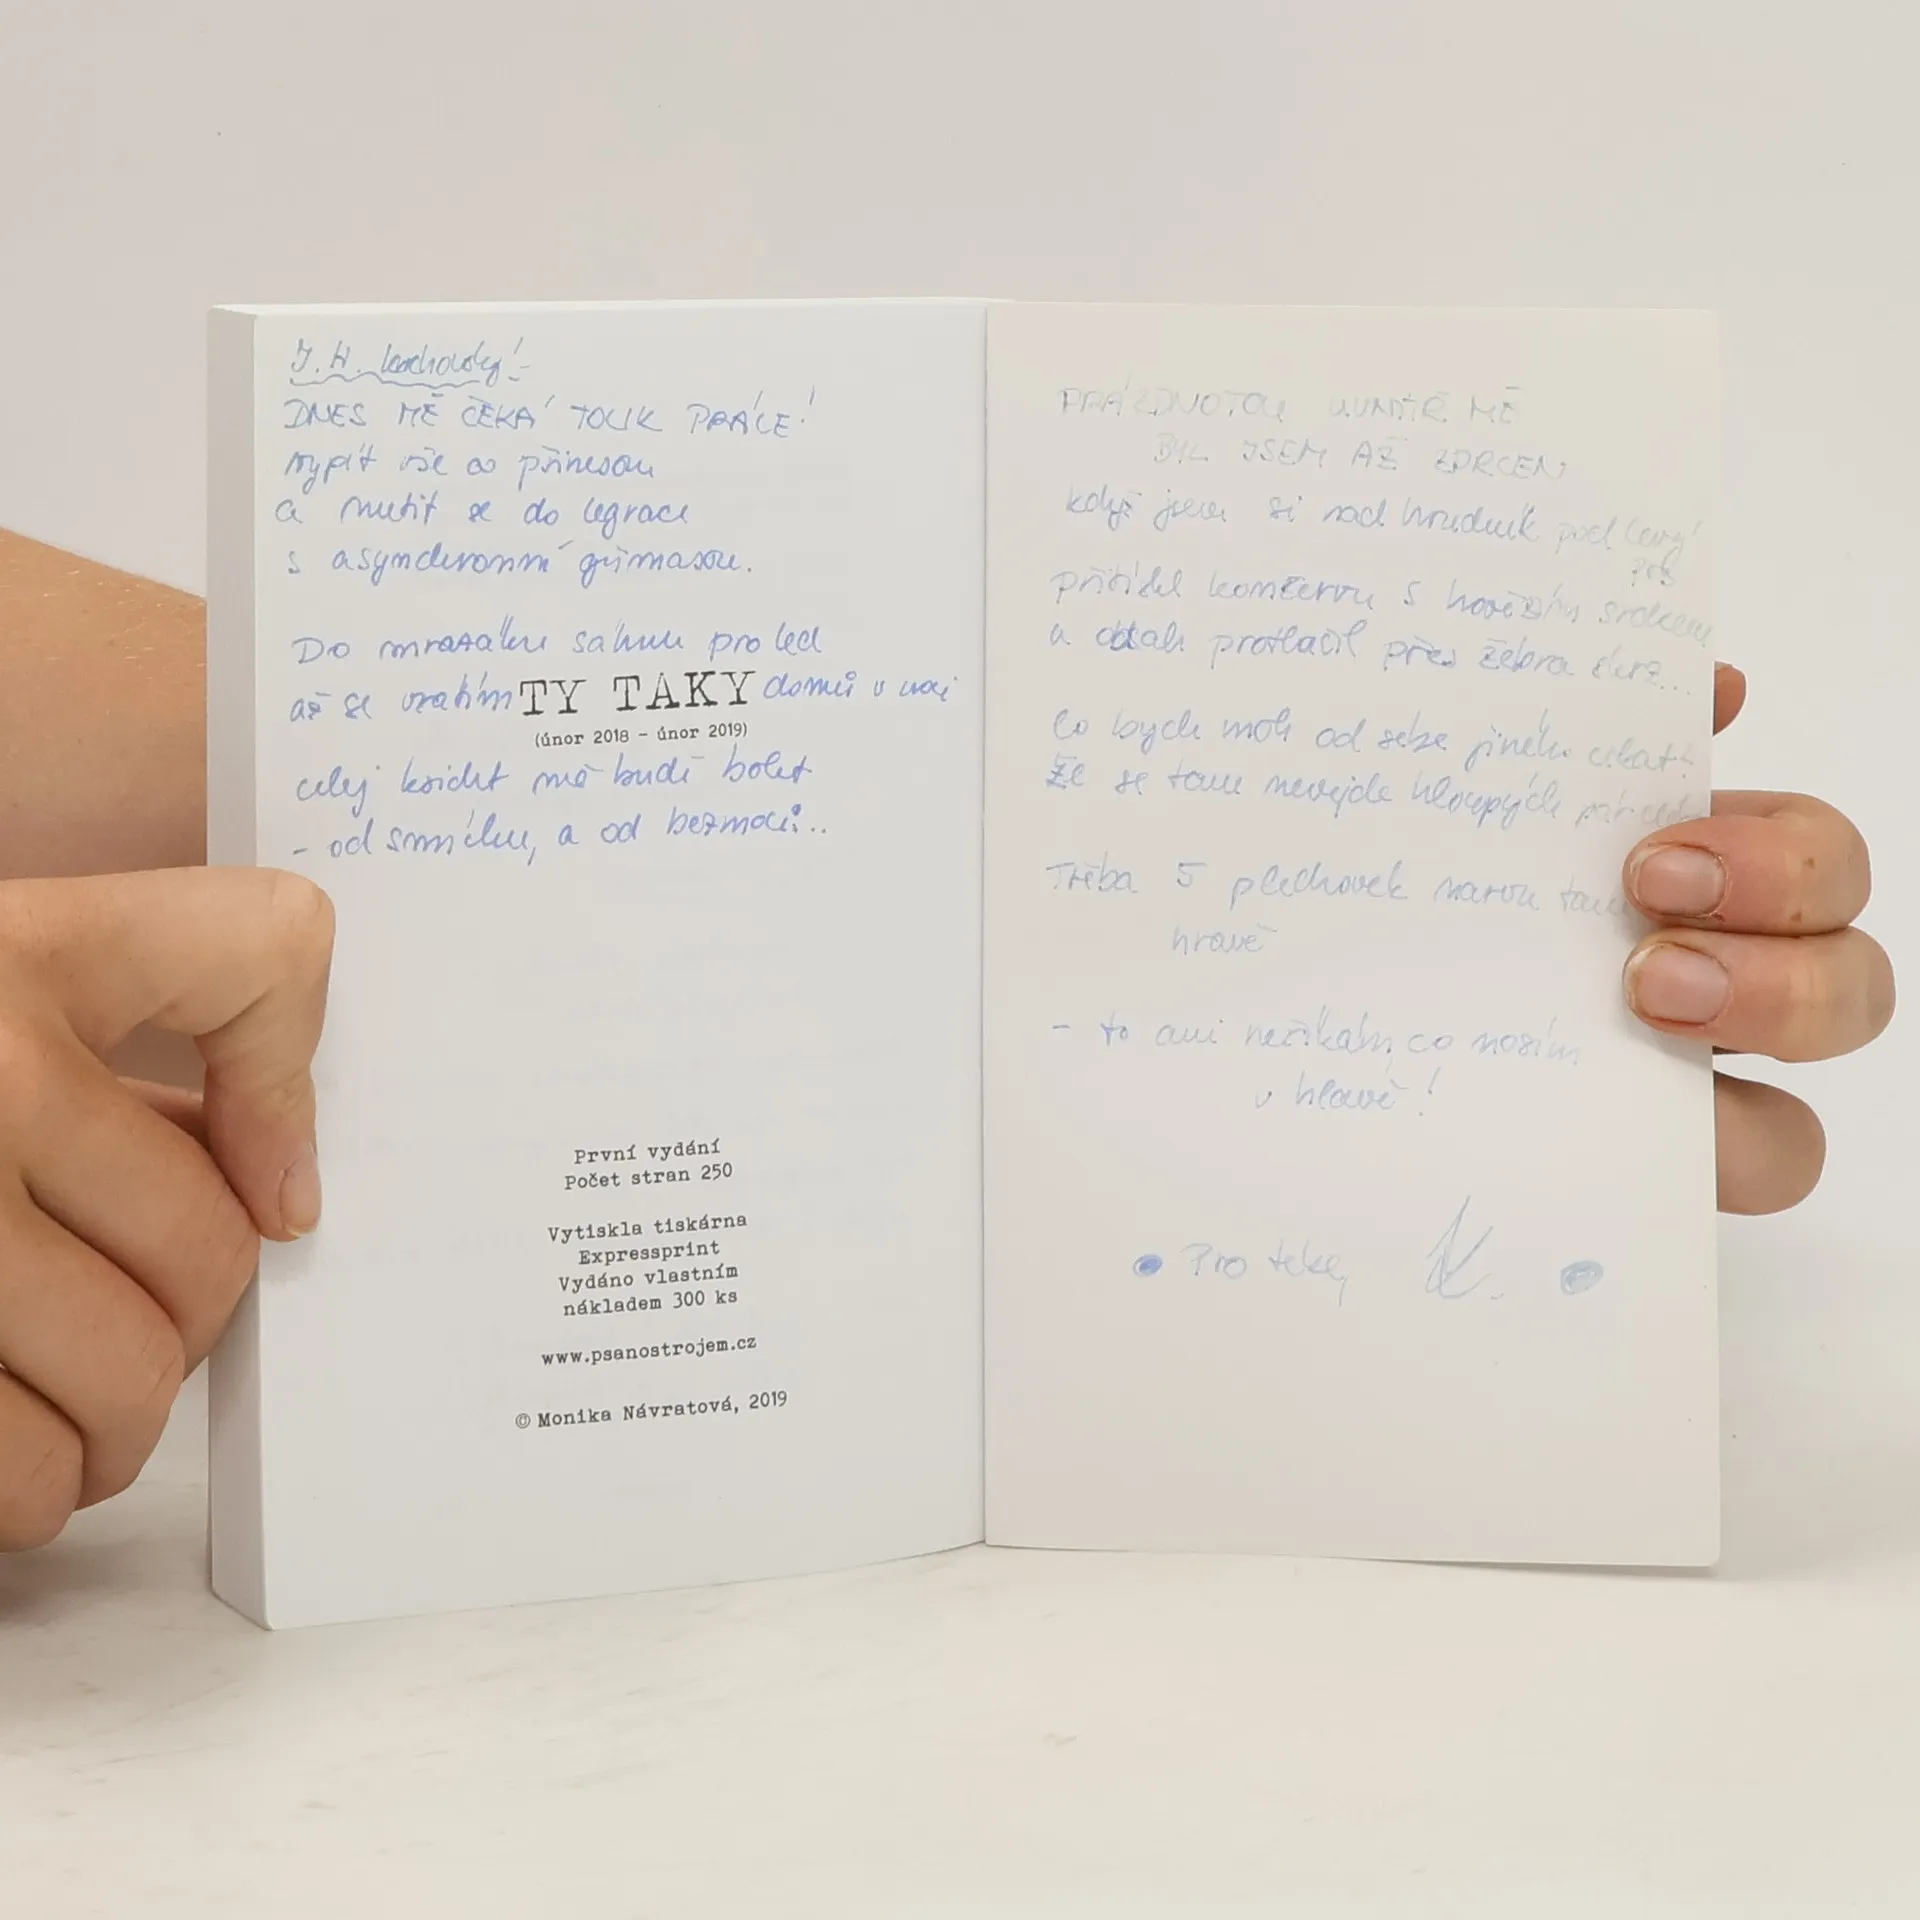 J. H. Krchovský!
DNES MĚ ČEKÁ TOLIK PRÁCE!
vypít vše co přinesou
a nutit se do legrace
s asynchronní grimasou.
Do mrazáku sáhnu pro led
až se vrátím TY TAKY domů v noci
(únor 2018 – únor 2019)
celej ksicht mě budí bolet
- od smíchu, a od bezmoci...
První vydání
Počet stran 250
Vytiskla tiskárna
Expressprint
Vydáno vlastním
nákladem 300 ks
www.psanostrojem.cz
© Monika Návratová, 2019
PRÁZDNOTOU UVNITŘ MĚ
BYL JSEM AŽ ZDRCEN
když jsem si nad hrudník pod levý
prs
přitiskl konzervu s hovězím srdcem
a obsah protlačil přes žebra skrz...
Co bych moh od sebe jiného čekat?
Že se tam nevejde hloupých pár
Třeba 5 plechovek narvu tam
hravě
- to ani neříkám, co nosím
v hlavě!
Pro